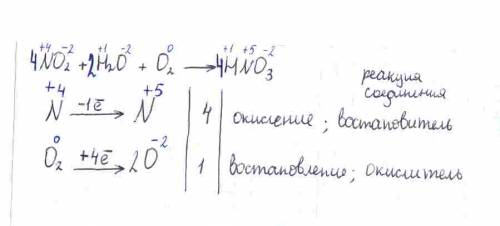 4N⁺⁴O₂⁻² + 2H₂⁺¹O⁻² + O₂⁰ → 4H⁺¹N⁺⁵O₃⁻²
реакция
соединения
N⁺⁴ –1ē → N⁺⁵ | 4 | окисление ; востановитель
O₂⁰ +4ē → 2O⁻² | 1 | востановление ; окислитель